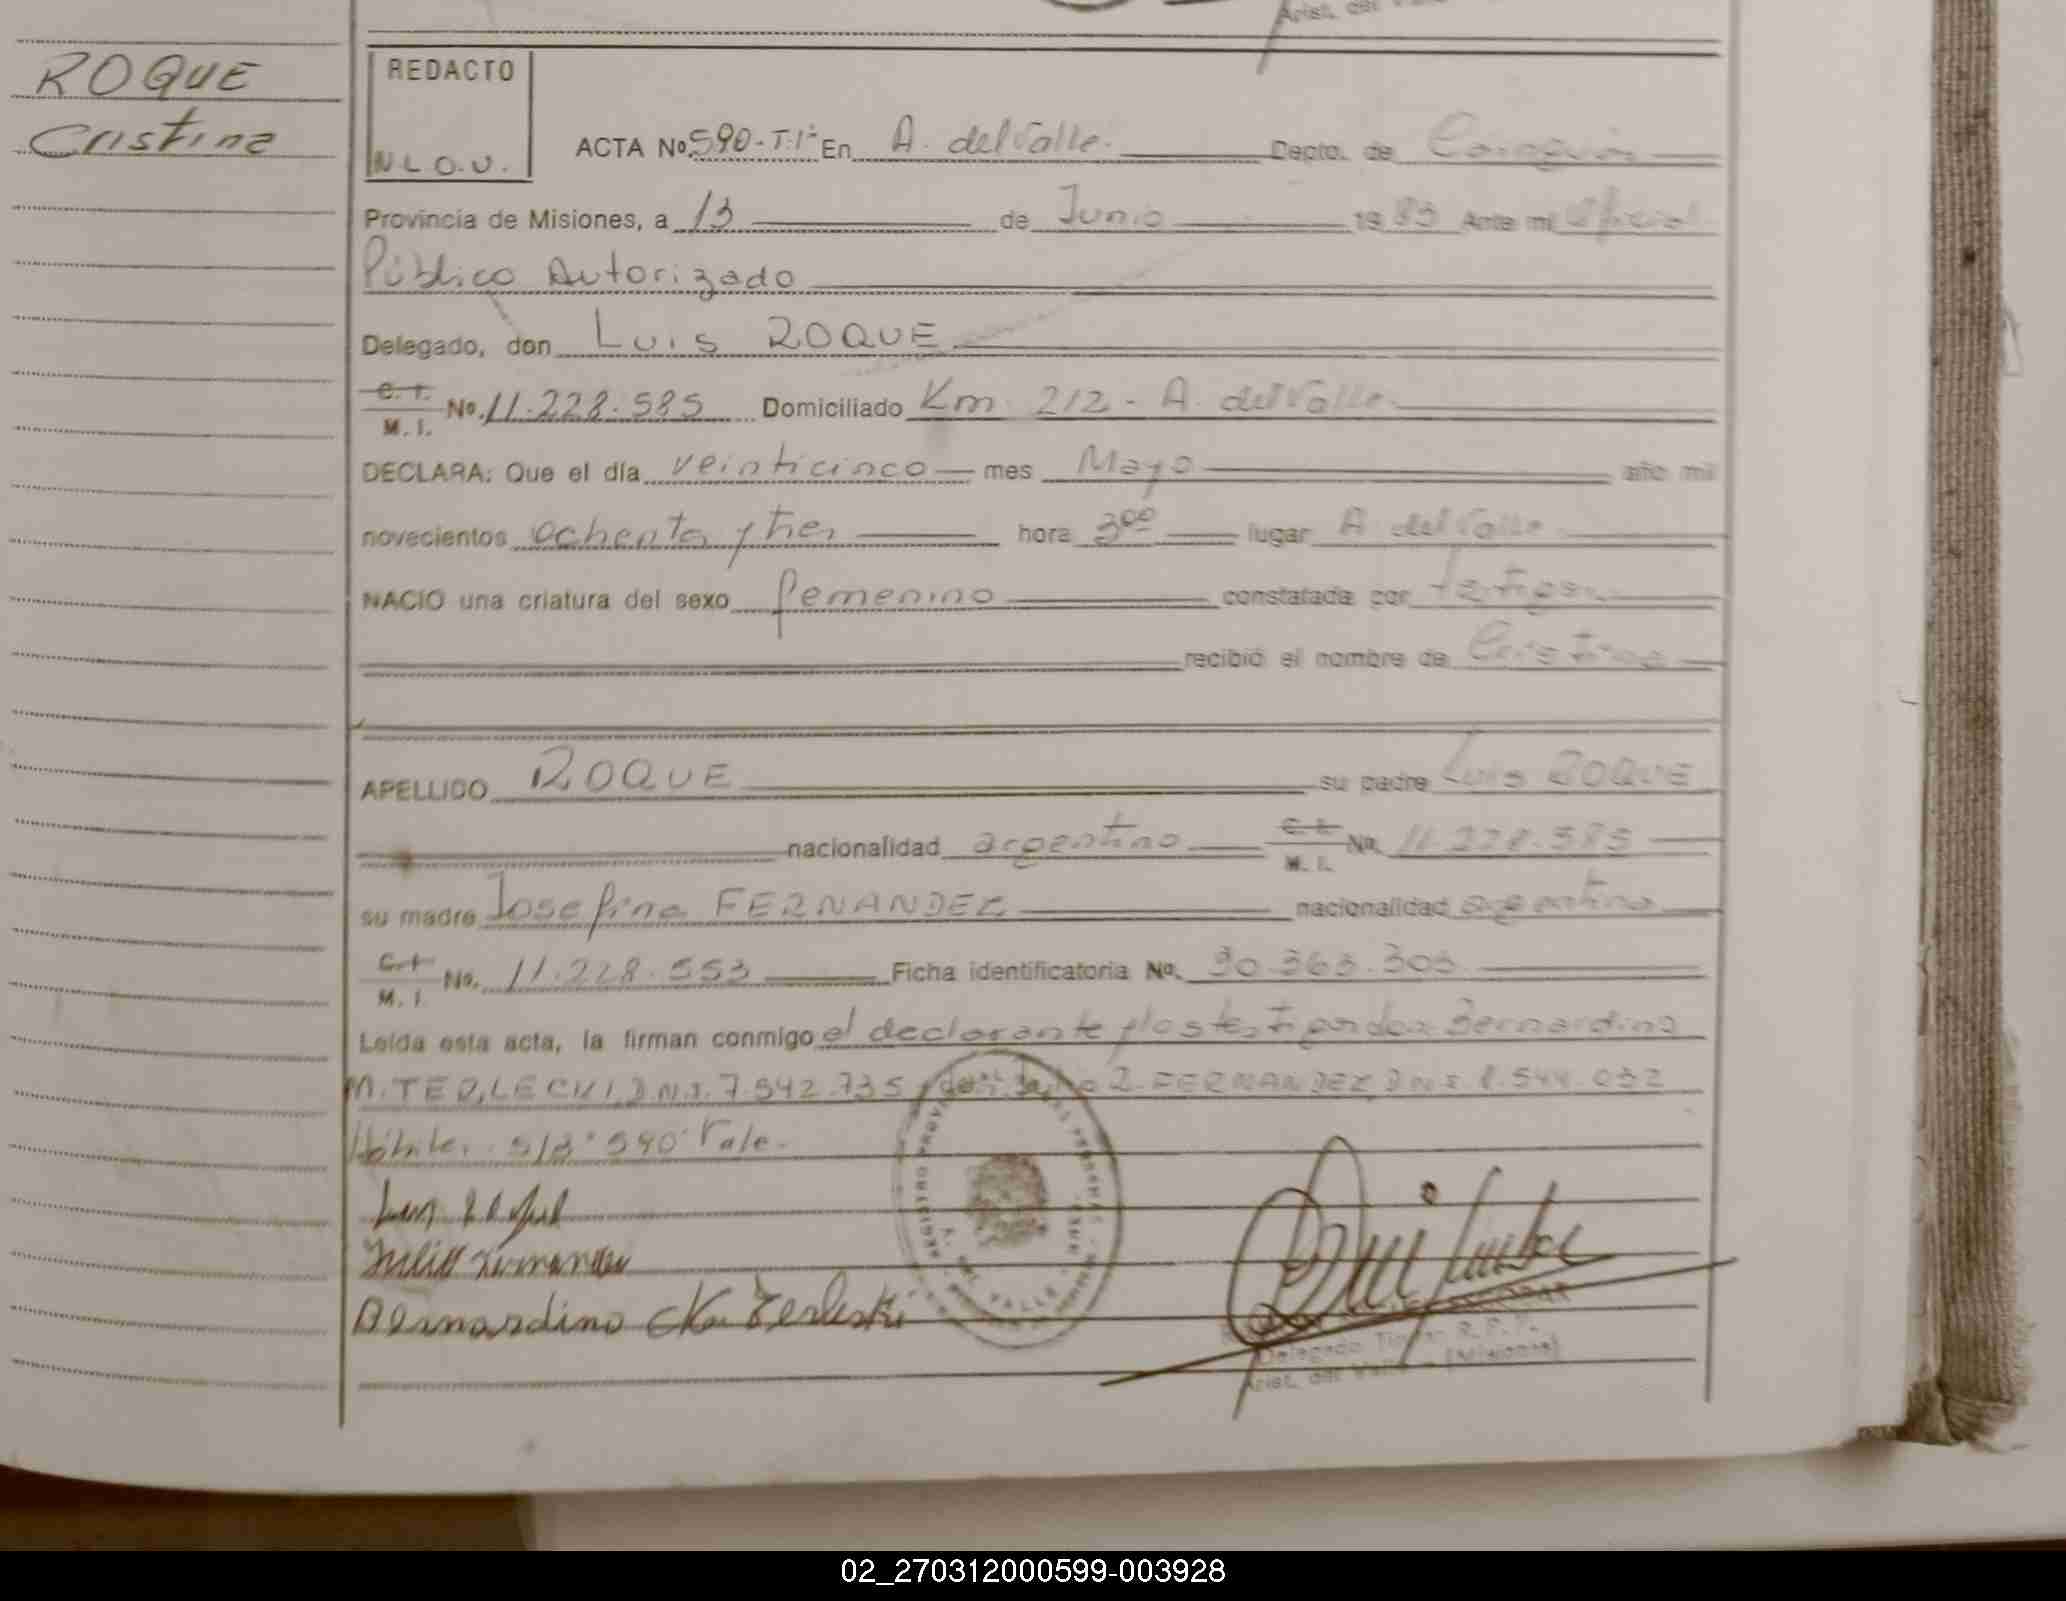 ROQUE
Cristina
REDACTO
N L O. U.
ACTA Nº 590-T.1º En A. del Valle. Depto. de Cainguás
Provincia de Misiones, a 13 de Junio 1983 Ante mi Oficial
Público Autorizado
Delegado, don Luis ROQUE
C. I. M. I. No. 11.228.585 Domiciliado Km. 212 - A. del Valle.
DECLARA: Que el día veinticinco mes Mayo año mil
novecientos ochenta y tres hora 3⁰⁰ lugar A del Valle
NACIO una criatura del sexo femenino constatada por testigos
recibió el nombre de Cristina
APELLIDO ROQUE su padre Luis ROQUE
nacionalidad argentino C. I. M. I. No. 11.228.585
su madre Josefina FERNANDEZ nacionalidad argentina
C. I. M. I. No. 11.228.553 Ficha identificatoria No. 90.363.303
Leída esta acta, la firman conmigo el declarante y los testigos don Bernardino
M. TERLECKI, D.N.I. 7.542.735 y don FERNANDEZ, D.N.I. 8.544.032
Hábiles. S/B "590" Vale.
Julio Fernandez
Bernardino M. Terleski
A. DEL VALLE
Delegado Titular R. P. P.
Arist. del Valle (Misiones)
02_270312000599-003928